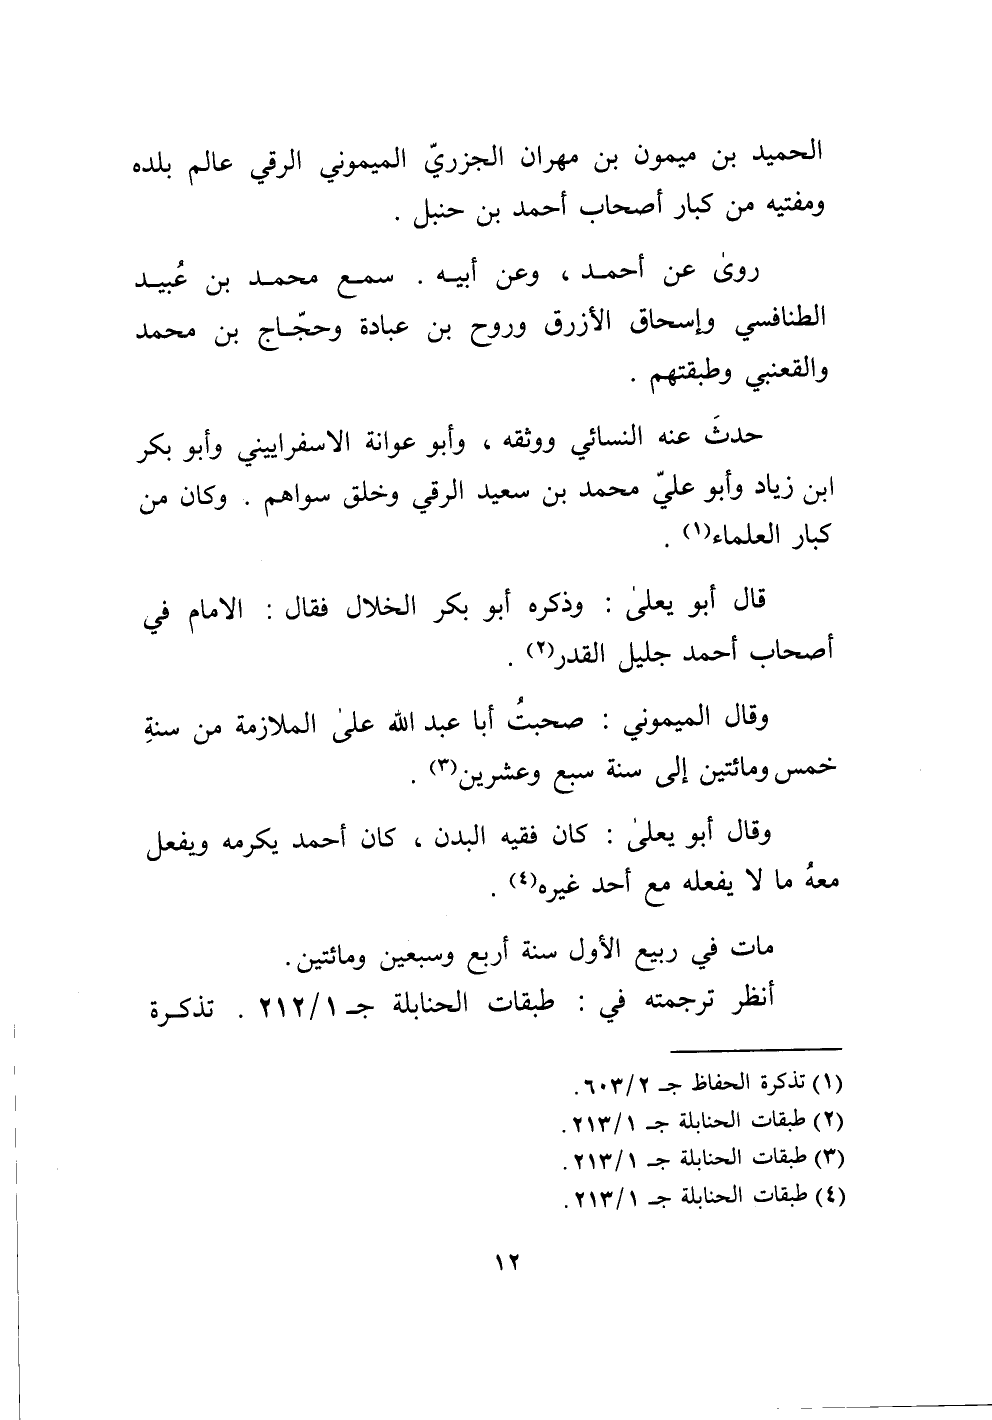 الحميد بن ميمون بن مهران الجزريّ الميموني الرقي عالم بلده
ومفتيه من كبار أصحاب أحمد بن حنبل .
روىٰ عن أحمد ، وعن أبيه . سمع محمد بن عُبيد
الطنافسي وإسحاق الأزرق وروح بن عبادة وحجّاج بن محمد
والقعنبي وطبقتهم .
حدثَ عنه النسائي ووثقه ، وأبو عوانة الاسفراييني وأبو بكر
ابن زياد وأبو عليّ محمد بن سعيد الرقي وخلق سواهم . وكان من
كبار العلماء(١) .
قال أبو يعلىٰ : وذكره أبو بكر الخلال فقال : الامام في
أصحاب أحمد جليل القدر(٢) .
وقال الميموني : صحبتُ أبا عبد الله علىٰ الملازمة من سنةِ
خمس ومائتين إلى سنة سبع وعشرين(٣) .
وقال أبو يعلىٰ : كان فقيه البدن ، كان أحمد يكرمه ويفعل
معهُ ما لا يفعله مع أحد غيره(٤) .
مات في ربيع الأول سنة أربع وسبعين ومائتين.
أنظر ترجمته في : طبقات الحنابلة جـ ٢١٢/١ . تذكرة
(١) تذكرة الحفاظ جـ ٦٠٣/٢.
(٢) طبقات الحنابلة جـ ٢١٣/١.
(٣) طبقات الحنابلة جـ ٢١٣/١.
(٤) طبقات الحنابلة جـ ٢١٣/١.
١٢